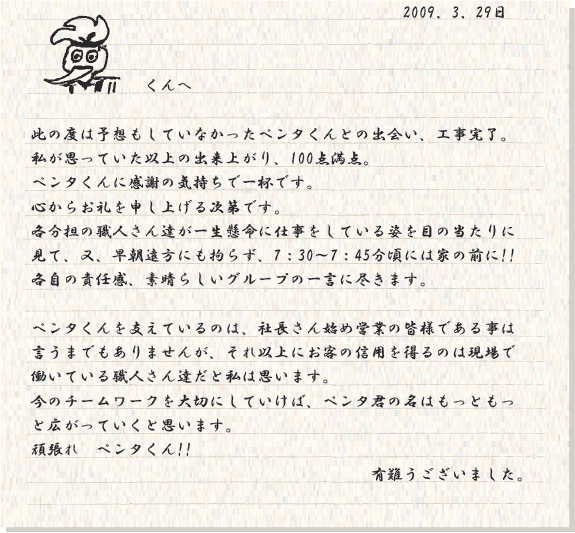 2009. 3. 29日
くんへ
此の度は予想もしていなかったペンタくんとの出会い、工事完了。
私が思っていた以上の出来上がり、100点満点。
ペンタくんに感謝の気持ちで一杯です。
心からお礼を申し上げる次第です。
各分担の職人さん達が一生懸命に仕事をしている姿を目の当たりに
見て、又、早朝遠方にも拘らず、7:30〜7:45分頃には家の前に!!
各自の責任感、素晴らしいグループの一言に尽きます。
ペンタくんを支えているのは、社長さん始め営業の皆様である事は
言うまでもありませんが、それ以上にお客の信用を得るのは現場で
働いている職人さん達だと私は思います。
今のチームワークを大切にしていけば、ペンタ君の名はもっともっ
と広がっていくと思います。
頑張れ ペンタくん!!
有難うございました。